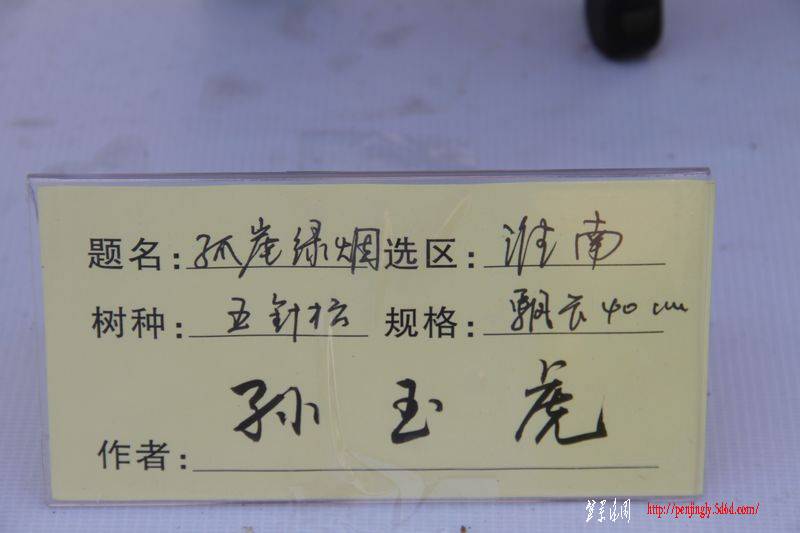 题名:孤崖绿烟 选区:淮南
树种:五針松 规格:飘长40cm
作者:孙玉虎
http://penjingly.5d6d.com/